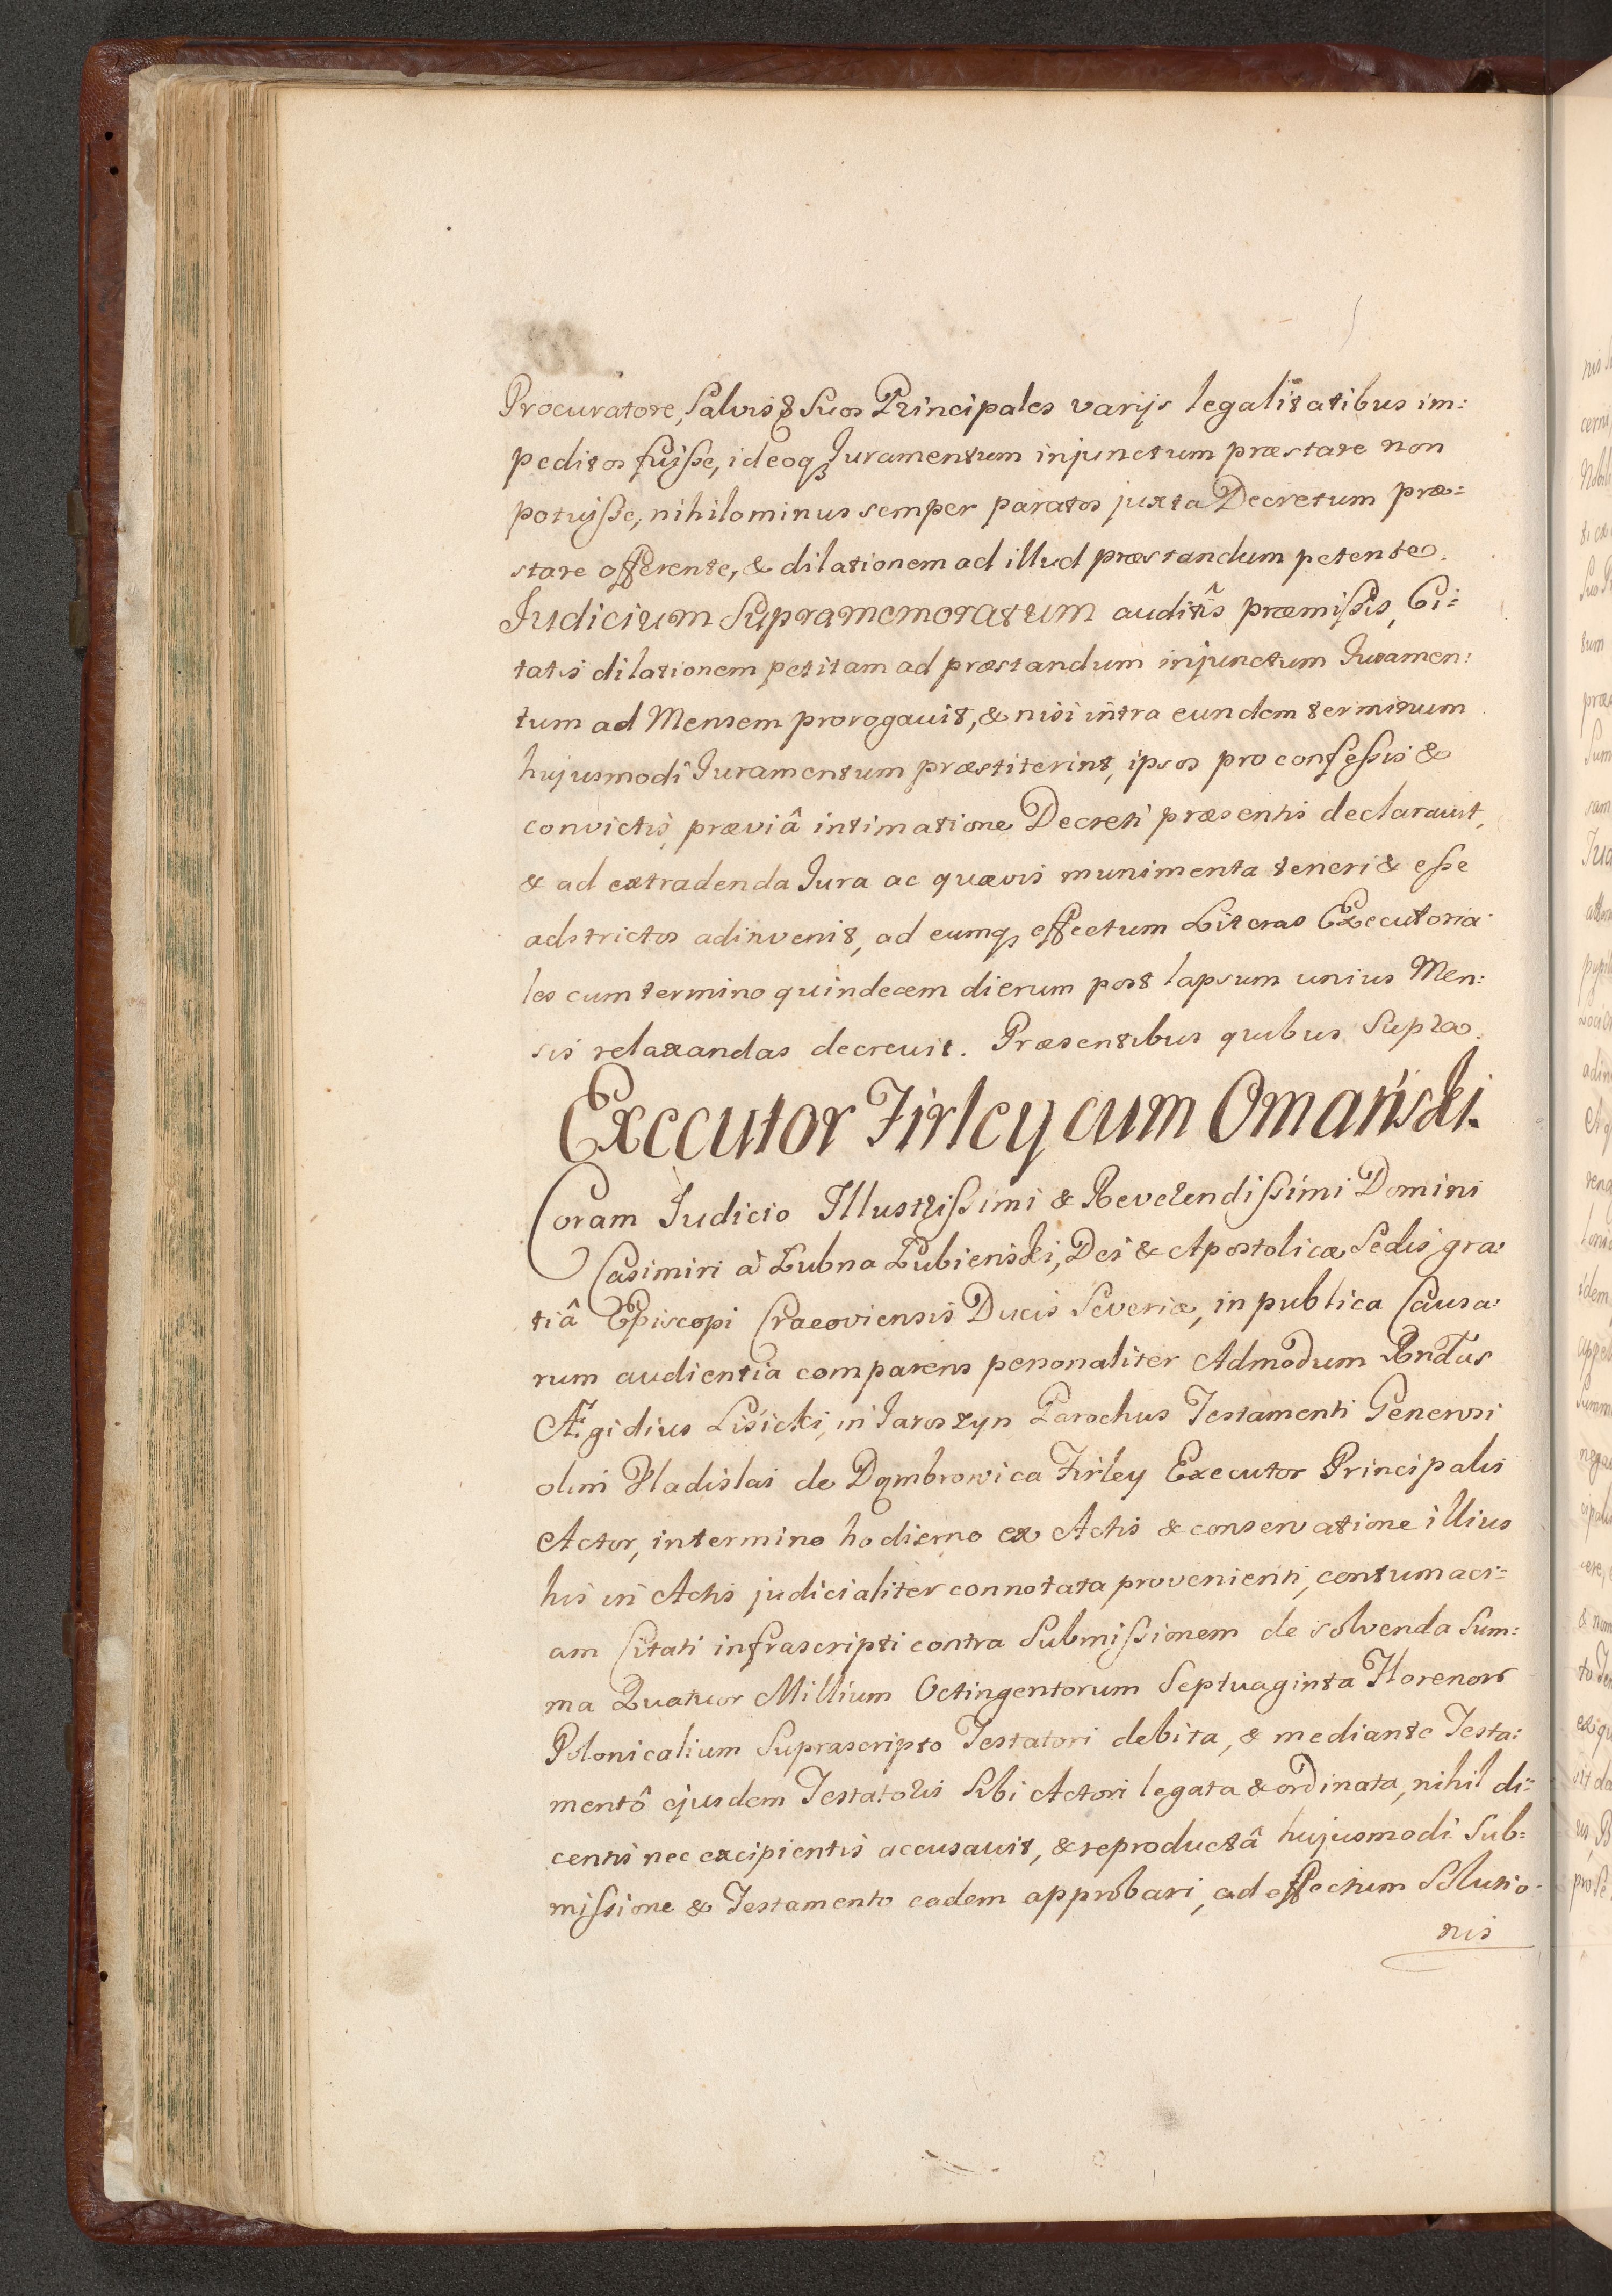 Procuratore, Salvis & Suos Principales varijs legalitatibus im:
peditos fuisse, ideoq3 Juramentum injunctum præstare non
potuisse, nihilominus semper paratos juxta Decretum præ=
stare offerente, & dilationem ad illud præstandum petente.
Judicium Supramemoratum auditîs præmissis, Ci=
tatis dilationem petitam ad præstandum injunctum Juramen:
tum ad Mensem prorogavit, & nisi intra eundem terminum
hujusmodi Juramentum præstiterint, ipsos pro confessis &
convictis, præviâ intimatione Decreti præsentis declaravit,
& ad extradenda Jura ac quævis munimenta teneri & esse
adstrictos adinvenit, ad eumq3 effectum Literas Executoria
les cum termino quindecem dierum post lapsum unius Men:
sis relaxandas decrevit. Præsentibus quibus Supra.
Executor Firley cum Omański.
Coram Judicio Illustrissimi & Reverendissimi Domini
Casimiri à Łubna Łubieński, Dei & Apostolicæ Sedis gra:
tiâ Episcopi Cracoviensis Ducis Severiæ, in publica Causa:
rum audientia comparens personaliter Admodum Rndus
Ægidius Liśicki, in Jaroszyn Parochus Testamenti Generosi
olim Vladislai de Dąmbrowica Firley Executor Principalis
Actor, in termino hodierno ex Actis & conservatione illius
his in Actis judicialiter connotata provenienti, contumaci=
am Citati infrascripti contra Submissionem de solvenda Sum:
ma Quatuor Millium Octingentorum Septuaginta Florenor
Polonicalium Suprascripto Testatori debita, & mediante Testa:
mentô ejusdem Testatoris Sibi Actori legata & ordinata, nihil di=
centis nec excipientis accusavit, & reproductâ hujusmodi Sub=
missione & Testamento eadem approbari, ad effectum Solutio-
nis